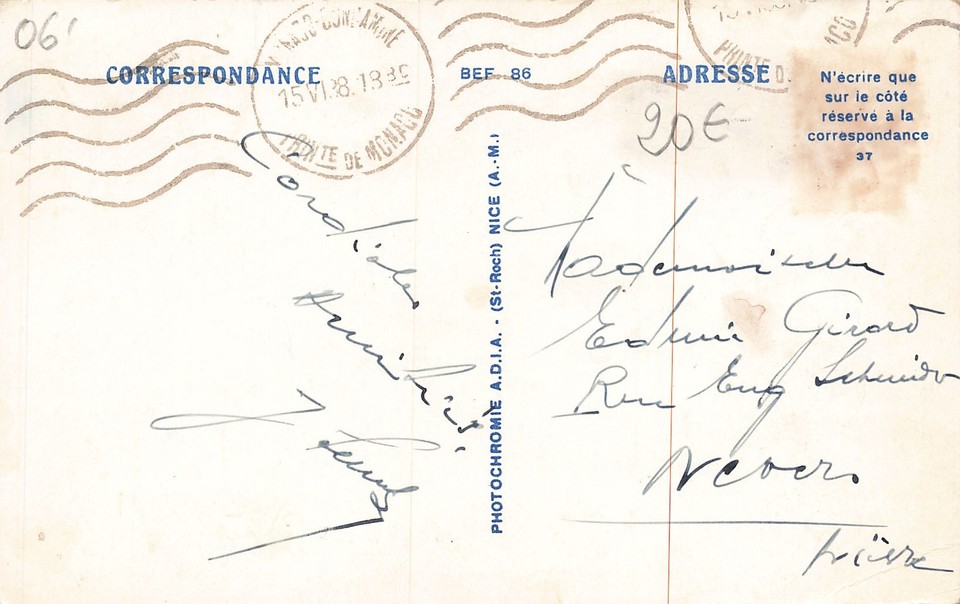 06'
CORRESPONDANCE
BEF 86
ADRESSE
N'écrire que
sur le côté
réservé à la
correspondance
37
MONACO-CONDAMINE
15 VI 38 · 18 35
PRINTE DE MONACO
20€
Cordiales
Amitiés
PHOTOCHROMIE A.D.I.A. - (St-Roch) NICE (A.-M.)
Mademoiselle
Edmée Girard
Rue Eug Schneider
Nevers
Nièvre